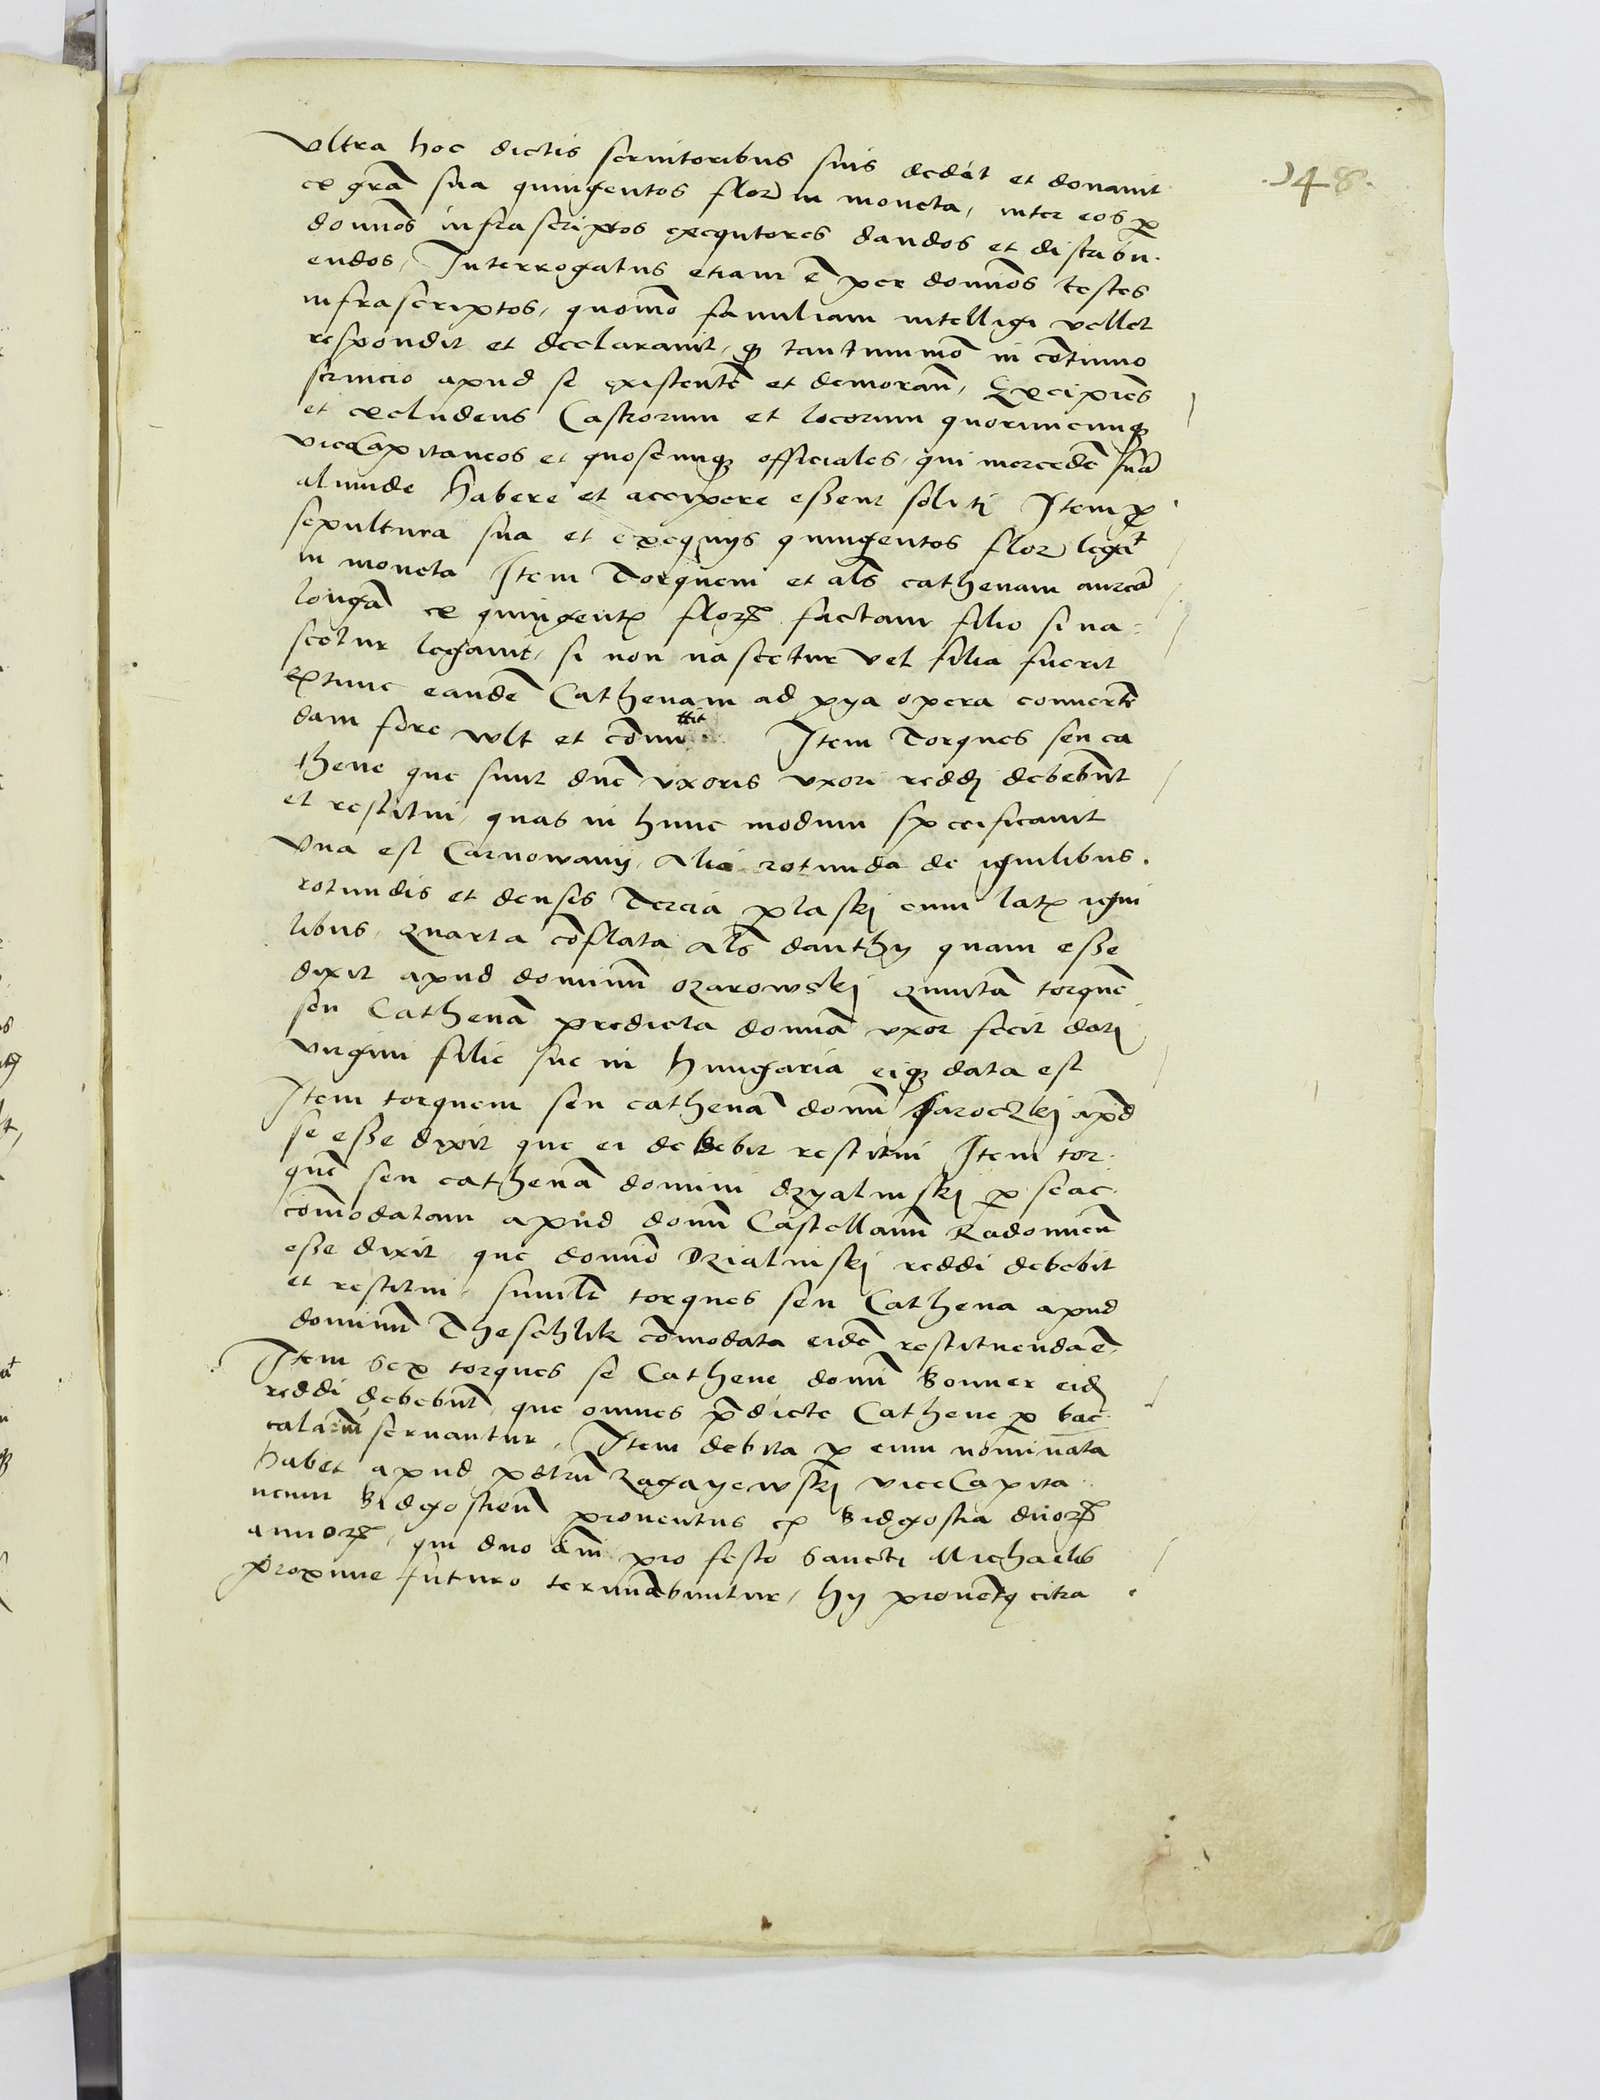 .148.
Ultra hoc dictis seruitoribus suis dedit et donauit
ex grã sua quingentos flor in moneta, inter eos p
domnõs infrascriptos exequtores dandos et distribu
endos, Interrogatus etiam ẽ per domnõs testes
infrascriptos, quomõ familiam intelligi vellet
respondit et declarauit, qz tantummõ in cõtinuo
seruicio apud se existentẽ et demorañ, Excipiẽs
et excludens Castrorum et locorum quorumcunqz
viceCapitaneos et quoscunqz officiales, qui mercedẽ suã
aliunde habere et accipere essent soliti Item p
sepultura sua et exequijs quingentos flor legat
in moneta Item Torquem et als cathenam aureã
longã ex quingentis florz factam filio si na=
scetur legauit, si non nascetur vel filia fuerit
extunc eandẽ Cathenam ad pya opera conuertẽ
dam fore wlt et cõmittit Item Torques seu ca
thene que sunt dnẽ vxoris vxori reddi debebũt
et restitui, quas in hunc modum specificauit
Vna est Carnowany, Alia rotunda de ignilibus.
rotundis et densis Tercia plaski cum latis igni
libus, Quarta cõflata Als danthy quam esse
dixit apud dominũ ozarowski Quintã torquẽ
seu Cathenã predicta domnã vxor fecit dari
virgini filie sue in Hungaria eiqz data est
Item torquem seu cathenã domñi Saroczki apd
se esse dixit que ei debebit restitui Item tor
quẽ seu cathenã domini dzyalinski p se ac
cõmodatam apud domñ Castellanũ Radomieñ
esse dixit, que domnõ Dzialinski reddi debebit
et restitui, similr torques seu Cathena apud
dominũ Theschlik cõmodata eidẽ restituenda ẽ,
Item sex torques se Cathene domñi Bonner eidẽ
reddi debebũt, que omnes pdicte Cathene p bac
calariũ seruantur, Item debita p eum nominata
habet apud petrũ Zagayewski viceCapita
neum Bidgostieñ prouentus ex Bidgostia duorz
annorz, qui duo anni pro festo Sancti Michaelis
proxime futuro terminabuntur, hy prouentus citra